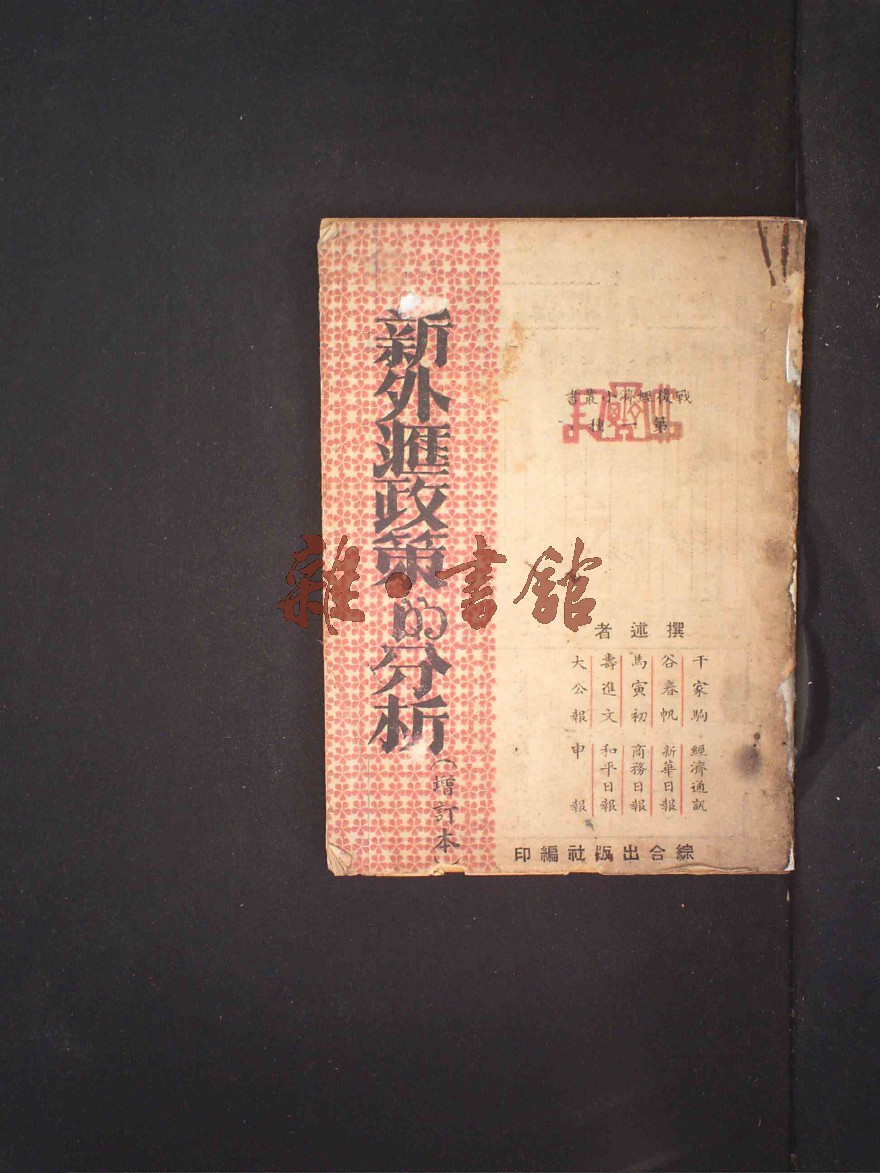 新外滙政策的分析
(增訂本)
戰後經濟小叢書
第一種
撰述者
千家駒 經濟通訊
谷春帆 新華日報
馬寅初 商務日報
壽進文 和平日報
大公報 申報
綜合出版社編印
雜·書舘